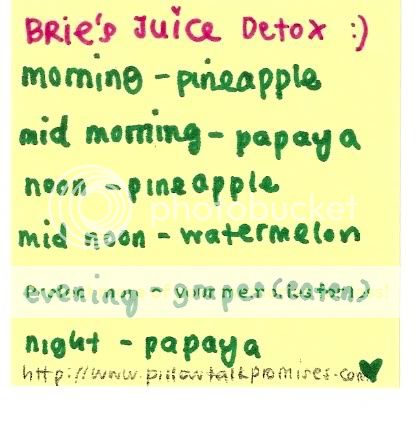 BRie's Juice Detox :)
morning - pineapple
mid morning - papaya
noon - pineapple
photobucket
mid noon - watermelon
evening - grapes (eaten)
night - papaya
http://www.pillowtalkpromises.com